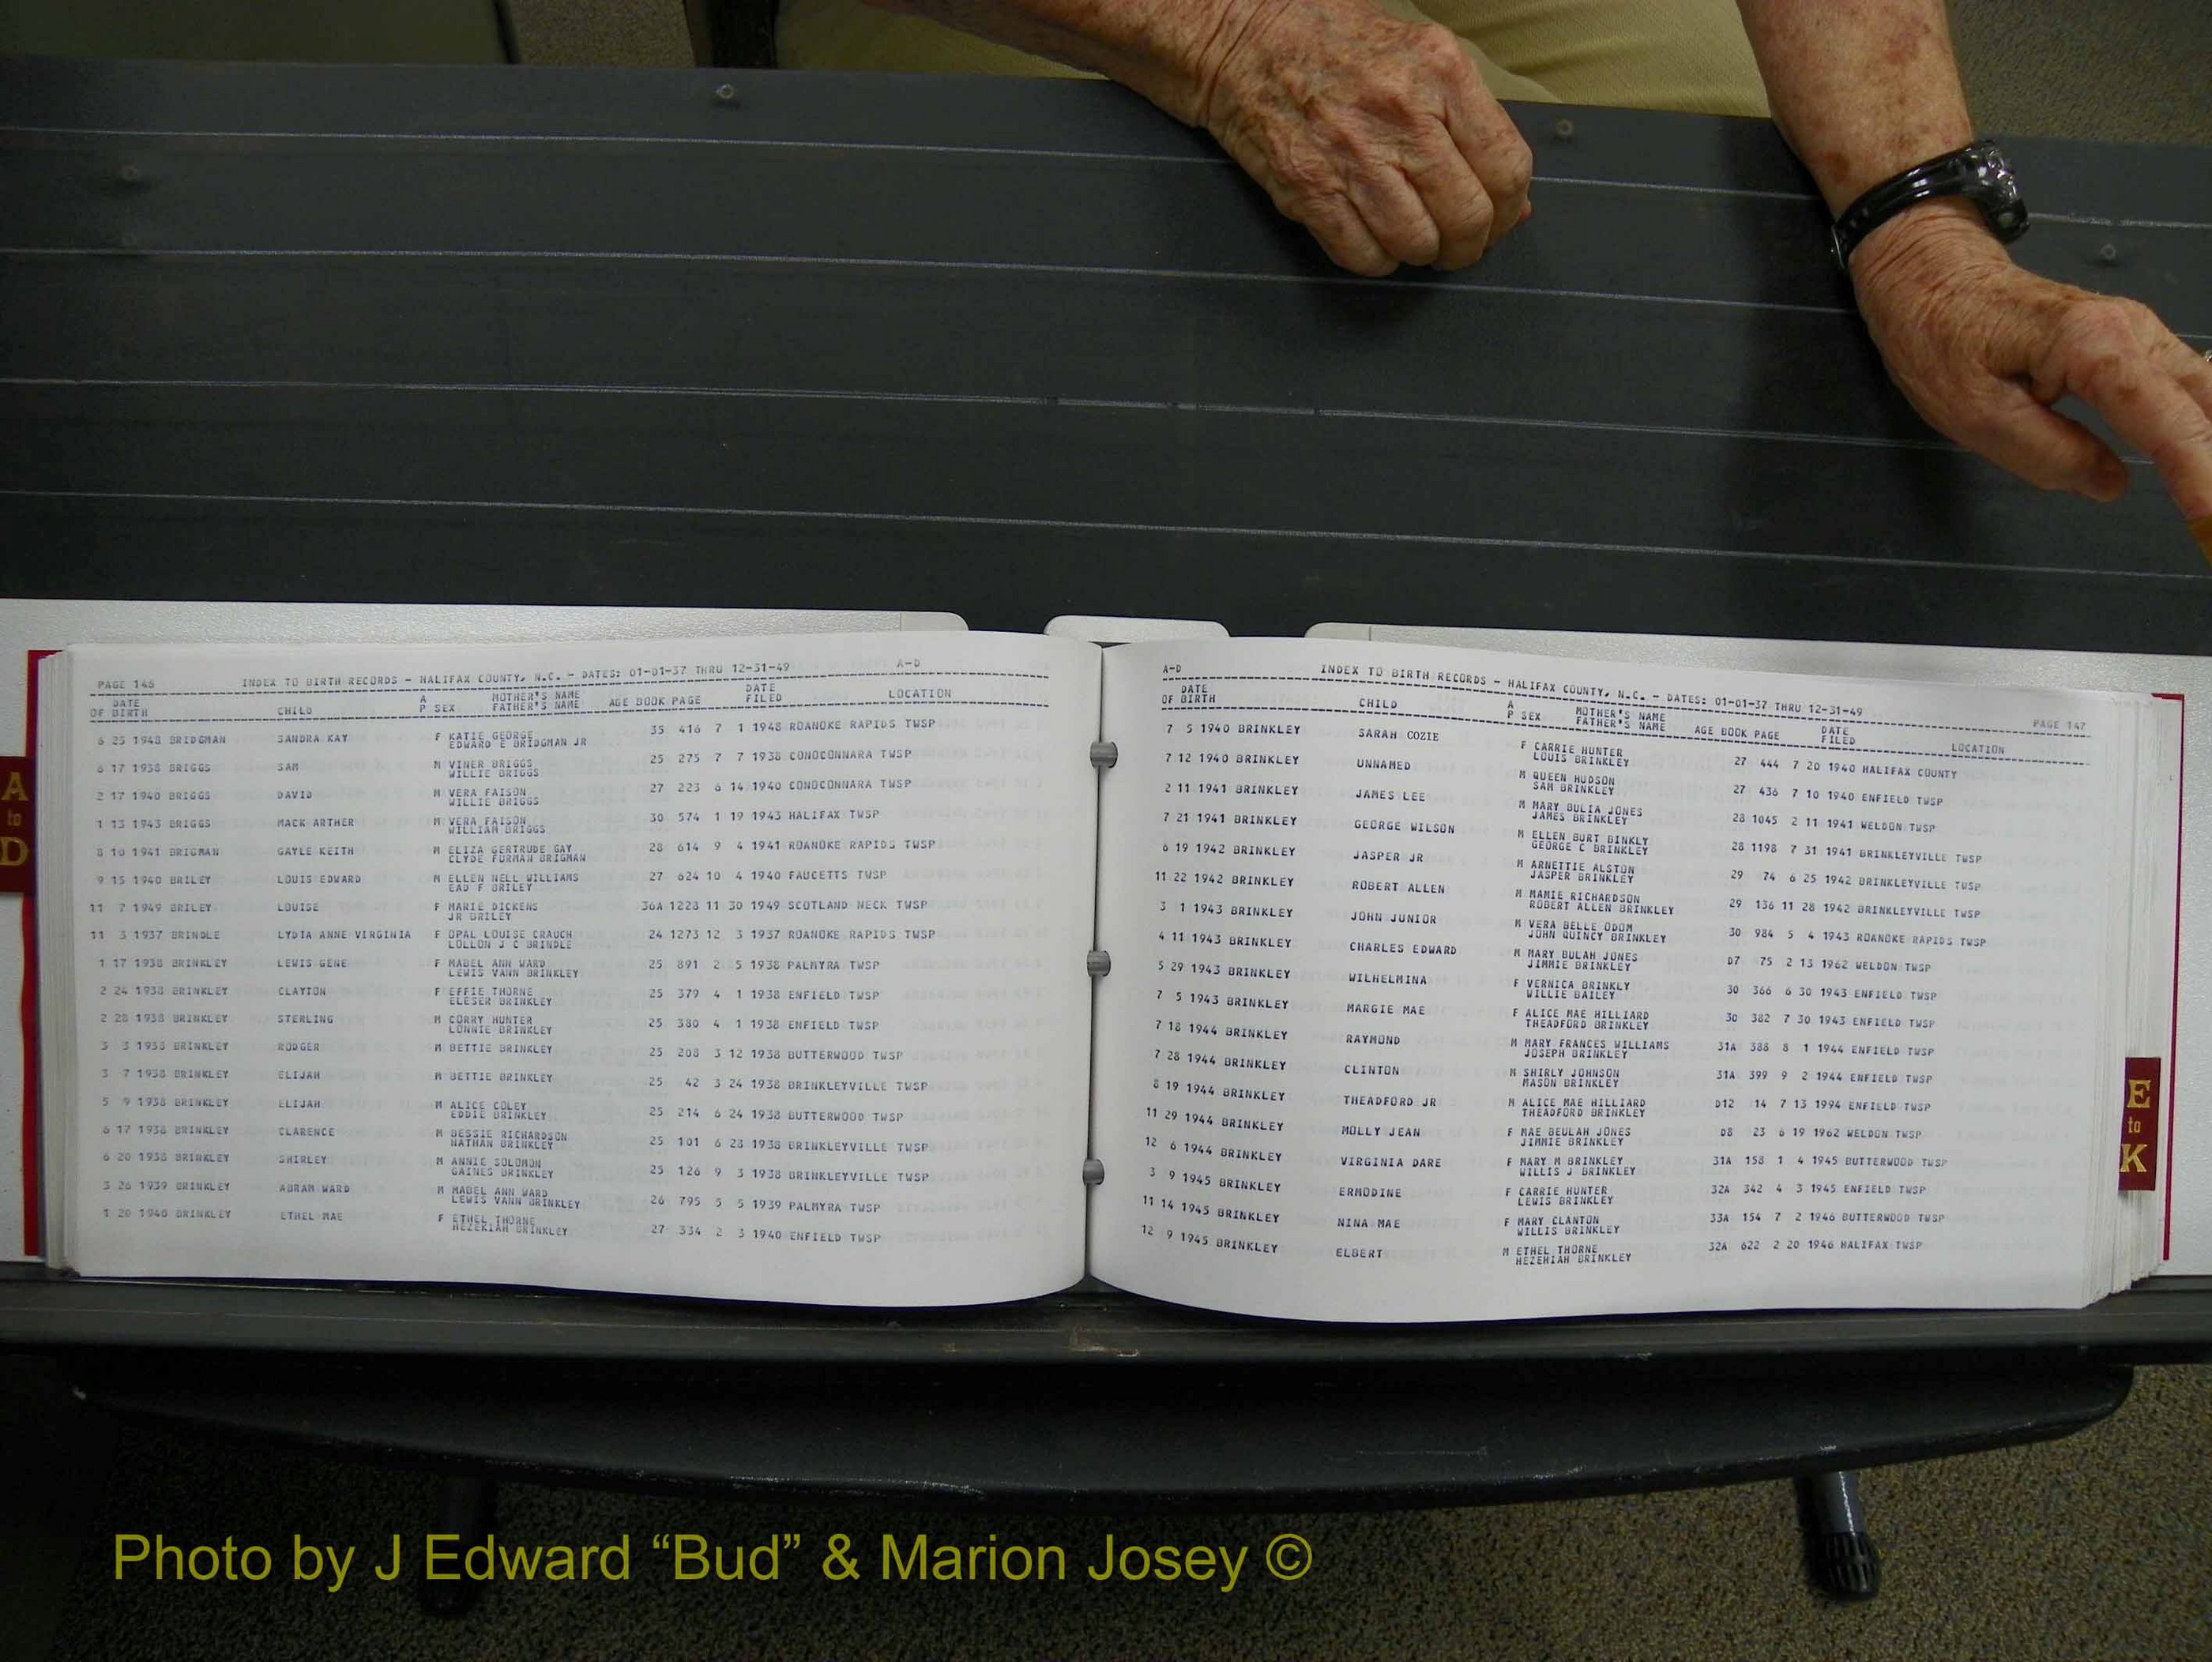 A
to
D
PAGE 146 INDEX TO BIRTH RECORDS - HALIFAX COUNTY, N.C. - DATES: 01-01-37 THRU 12-31-49 A-D
DATE OF BIRTH CHILD A P SEX MOTHER'S NAME FATHER'S NAME AGE BOOK PAGE DATE FILED LOCATION
6 25 1948 BRIDGMAN SANDRA KAY F KATIE GEORGE 35 416 7 1 1948 ROANOKE RAPIDS TWSP
EDWARD E BRIDGMAN JR
6 17 1938 BRIGGS SAM M VINER BRIGGS 25 275 7 7 1938 CONOCONNARA TWSP
WILLIE BRIGGS
2 17 1940 BRIGGS DAVID M VERA FAISON 27 223 6 14 1940 CONOCONNARA TWSP
WILLIE BRIGGS
1 13 1943 BRIGGS MACK ARTHER M VERA FAISON 30 574 1 19 1943 HALIFAX TWSP
WILLIAM BRIGGS
8 10 1941 BRIGMAN GAYLE KEITH M ELIZA GERTRUDE GAY 28 614 9 4 1941 ROANOKE RAPIDS TWSP
CLYDE FURMAN BRIGMAN
9 15 1940 BRILEY LOUIS EDWARD M ELLEN NELL WILLIAMS 27 624 10 4 1940 FAUCETTS TWSP
EAD F BRILEY
11 7 1949 BRILEY LOUISE F MARIE DICKENS 36A 1228 11 30 1949 SCOTLAND NECK TWSP
JR BRILEY
11 3 1937 BRINDLE LYDIA ANNE VIRGINIA F OPAL LOUISE CRAUCH 24 1273 12 3 1937 ROANOKE RAPIDS TWSP
LOLLON J C BRINDLE
1 17 1938 BRINKLEY LEWIS GENE F MABEL ANN WARD 25 891 2 5 1938 PALMYRA TWSP
LEWIS VANN BRINKLEY
2 24 1938 BRINKLEY CLAYTON F EFFIE THORNE 25 379 4 1 1938 ENFIELD TWSP
ELESER BRINKLEY
2 28 1938 BRINKLEY STERLING M CORRY HUNTER 25 380 4 1 1938 ENFIELD TWSP
LONNIE BRINKLEY
3 3 1938 BRINKLEY RODGER M BETTIE BRINKLEY 25 208 3 12 1938 BUTTERWOOD TWSP
3 7 1938 BRINKLEY ELIJAH M BETTIE BRINKLEY 25 42 3 24 1938 BRINKLEYVILLE TWSP
5 9 1938 BRINKLEY ELIJAH M ALICE COLEY 25 214 6 24 1938 BUTTERWOOD TWSP
EDDIE BRINKLEY
6 17 1938 BRINKLEY CLARENCE M BESSIE RICHARDSON 25 101 6 28 1938 BRINKLEYVILLE TWSP
NATHAN BRINKLEY
6 20 1938 BRINKLEY SHIRLEY M ANNIE SOLOMON 25 126 9 3 1938 BRINKLEYVILLE TWSP
GAINES BRINKLEY
3 26 1939 BRINKLEY ABRAM WARD M MABEL ANN WARD 26 795 5 5 1939 PALMYRA TWSP
LEWIS VANN BRINKLEY
1 20 1940 BRINKLEY ETHEL MAE F ETHEL THORNE 27 334 2 3 1940 ENFIELD TWSP
HEZEKIAH BRINKLEY
A-D INDEX TO BIRTH RECORDS - HALIFAX COUNTY, N.C. - DATES: 01-01-37 THRU 12-31-49 PAGE 147
DATE OF BIRTH CHILD A P SEX MOTHER'S NAME FATHER'S NAME AGE BOOK PAGE DATE FILED LOCATION
7 5 1940 BRINKLEY SARAH COZIE F CARRIE HUNTER 27 444 7 20 1940 HALIFAX COUNTY
LOUIS BRINKLEY
7 12 1940 BRINKLEY UNNAMED M QUEEN HUDSON 27 436 7 10 1940 ENFIELD TWSP
SAM BRINKLEY
2 11 1941 BRINKLEY JAMES LEE M MARY BULIA JONES 28 1045 2 11 1941 WELDON TWSP
JAMES BRINKLEY
7 21 1941 BRINKLEY GEORGE WILSON M ELLEN BURT BINKLY 28 1198 7 31 1941 BRINKLEYVILLE TWSP
GEORGE C BRINKLEY
6 19 1942 BRINKLEY JASPER JR M ARNETTIE ALSTON 29 74 6 25 1942 BRINKLEYVILLE TWSP
JASPER BRINKLEY
11 22 1942 BRINKLEY ROBERT ALLEN M MAMIE RICHARDSON 29 136 11 28 1942 BRINKLEYVILLE TWSP
ROBERT ALLEN BRINKLEY
3 1 1943 BRINKLEY JOHN JUNIOR M VERA BELLE ODOM 30 984 5 4 1943 ROANOKE RAPIDS TWSP
JOHN QUINCY BRINKLEY
4 11 1943 BRINKLEY CHARLES EDWARD M MARY BULAH JONES D7 75 2 13 1962 WELDON TWSP
JIMMIE BRINKLEY
5 29 1943 BRINKLEY WILHELMINA F VERNICA BRINKLY 30 366 6 30 1943 ENFIELD TWSP
WILLIE BAILEY
7 5 1943 BRINKLEY MARGIE MAE F ALICE MAE HILLIARD 30 382 7 30 1943 ENFIELD TWSP
THEADFORD BRINKLEY
7 18 1944 BRINKLEY RAYMOND M MARY FRANCES WILLIAMS 31A 388 8 1 1944 ENFIELD TWSP
JOSEPH BRINKLEY
7 28 1944 BRINKLEY CLINTON M SHIRLY JOHNSON 31A 399 9 2 1944 ENFIELD TWSP
MASON BRINKLEY
8 19 1944 BRINKLEY THEADFORD JR M ALICE MAE HILLIARD D12 14 7 13 1994 ENFIELD TWSP
THEADFORD BRINKLEY
11 29 1944 BRINKLEY MOLLY JEAN F MAE BEULAH JONES D8 23 6 19 1962 WELDON TWSP
JIMMIE BRINKLEY
12 6 1944 BRINKLEY VIRGINIA DARE F MARY M BRINKLEY 31A 158 1 4 1945 BUTTERWOOD TWSP
WILLIS J BRINKLEY
3 9 1945 BRINKLEY ERMODINE F CARRIE HUNTER 32A 342 4 3 1945 ENFIELD TWSP
LEWIS BRINKLEY
11 14 1945 BRINKLEY NINA MAE F MARY CLANTON 33A 154 7 2 1946 BUTTERWOOD TWSP
WILLIS BRINKLEY
12 9 1945 BRINKLEY ELBERT M ETHEL THORNE 32A 622 2 20 1946 HALIFAX TWSP
HEZEHIAH BRINKLEY
E
to
K
Photo by J Edward “Bud” & Marion Josey ©